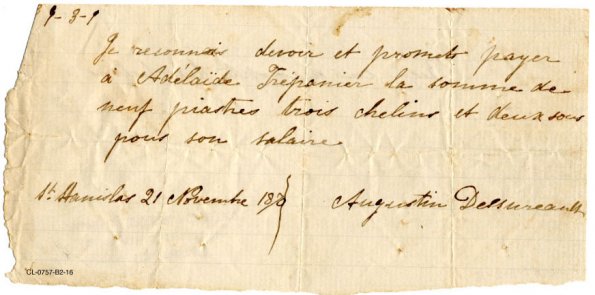 9-3-9
Je reconnais devoir et promets payer
à Adélaïde Trépanier la somme de
neuf piastres trois chelins et deux sous
pour son salaire
St. Stanislas 21 Novembre
Augustin Dessureault
CL-0757-B2-16